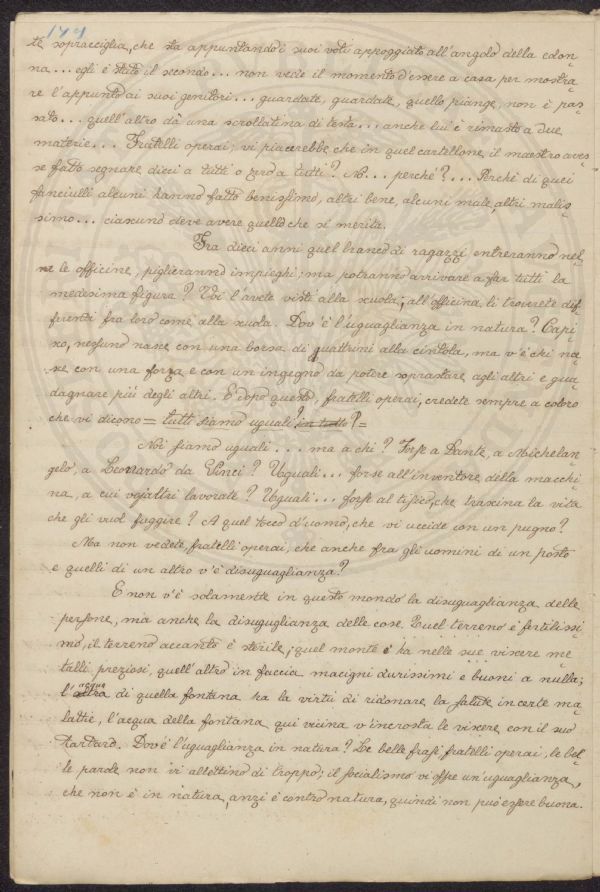 174
te sopracciglia, che sta appuntando i suoi voti appoggiato all'angolo della colon-
na... egli è stato il secondo... non vede il momento d'essere a casa per mostra-
re l'appunto ai suoi genitori... guardate, guardate, quello piange, non è pas-
sato... quell'altro dà una scrollatina di testa... anche lui è rimasto a due
materie... Fratelli operai; vi piacerebbe che in quel cartellone il maestro aves-
se fatto segnare dieci a tutti o zero a tutti? No... perché?... Perché di quei
fanciulli alcuni hanno fatto benissimo, altri bene, alcuni male, altri malis-
simo... ciascuno deve avere quello che si merita.
Fra dieci anni quel branco di ragazzi entreranno nel-
le officine, piglieranno impieghi; ma potranno arrivare a far tutti la
medesima figura? Voi l'avete visti alla scuola; all'officina li troverete dif-
ferenti fra loro come alla scuola. Dov'è l'uguaglianza in natura? Capi-
sco, nessuno nasce con una borsa di quattrini alla cintola, ma v'è chi na-
sce con una forza e con un ingegno da potere soprastare agli altri e gua-
dagnare più degli altri. E dopo questo, fratelli operai, credete sempre a coloro
che vi dicono = tutti siamo uguali? in tutto? =
Noi siamo uguali... ma a chi? Forse a Dante, a Michelan-
gelo, a Leonardo da Vinci? Uguali... forse all'inventore della macchi-
na, a cui vojaltri lavorate? Uguali... forse al tisico, che trascina la vita
che gli vuol fuggire? A quel tocco d'uomo, che vi uccide con un pugno?
Ma non vedete, fratelli operai, che anche fra gli uomini di un posto
e quelli di un altro v'è disuguaglianza?
E non v'è solamente in questo mondo la disuguaglianza delle
persone, ma anche la disuguglianza delle cose. Quel terreno è fertilissi-
mo, il terreno accanto è sterile; quel monte è ha nelle sue viscere me-
talli preziosi, quell'altro in faccia macigni durissimi e buoni a nulla;
l'acqua di quella fontana ha la virtù di ridonare la salute in certe ma-
lattie, l'acqua della fontana qui vicina v'incrosta le viscere con il suo
tartaro. Dov'è l'uguaglianza in natura? Le belle frasi, fratelli operai, le bel-
le parole non vi allettino di troppo; il socialismo vi offre un'uguaglianza,
che non è in natura, anzi è contro natura, quindi non può essere buona.